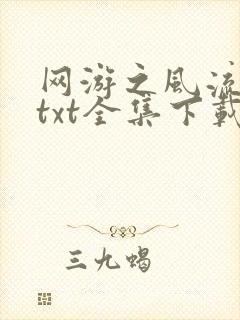 网游之风流
txt全集下载
三九蝎